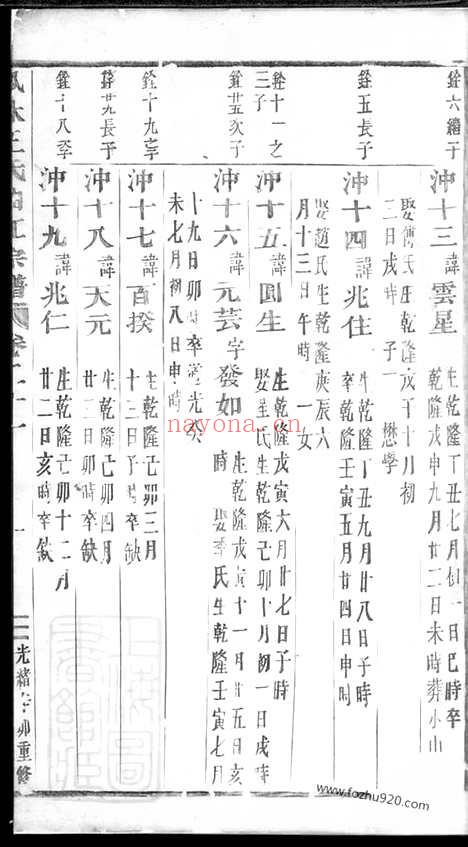 銓六繼子
沖十三諱雲星
生乾隆丁丑七月初一日巳時卒
乾隆戊申九月廿二日未時葬小山
娶傅氏生乾隆戊子十月初
二日戌時子一 懋學
銓五長子
沖十四諱兆住
生乾隆丁丑九月廿八日子時
卒乾隆壬寅五月廿四日申時
娶趙氏生乾隆庚辰六
月十三日午時 一女
銓十一之
三子
沖十五諱圓生
生乾隆戊寅六月廿七日子時
娶星氏生乾隆己卯十月初一日戌時
銓芸次子
沖十六諱元芸字發如
生乾隆戊寅十一月廿五日亥
時 娶李氏生乾隆壬寅七月
十九日卯時卒道光癸
未七月初八日申時
銓十九享
沖十七諱百揆
生乾隆己卯三月
十三日時卒缺
銓芸長子
沖十八諱大元
生乾隆己卯四月
廿二日卯時卒缺
銓十八季
沖十九諱兆仁
生乾隆己卯十二月
廿二日亥時卒缺
林王氏宗譜 卷十一
光緒辛卯重修
nayona.cn
www.fozhu920.com